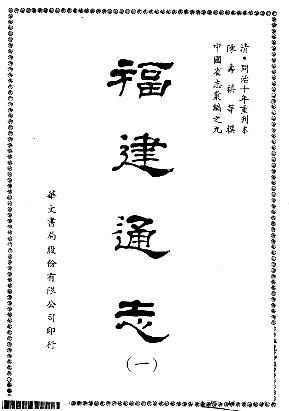 清・同治十年重刊本
陳壽祺等撰
中國省志彙編之九
福建通志
(一)
華文書局股份有限公司印行